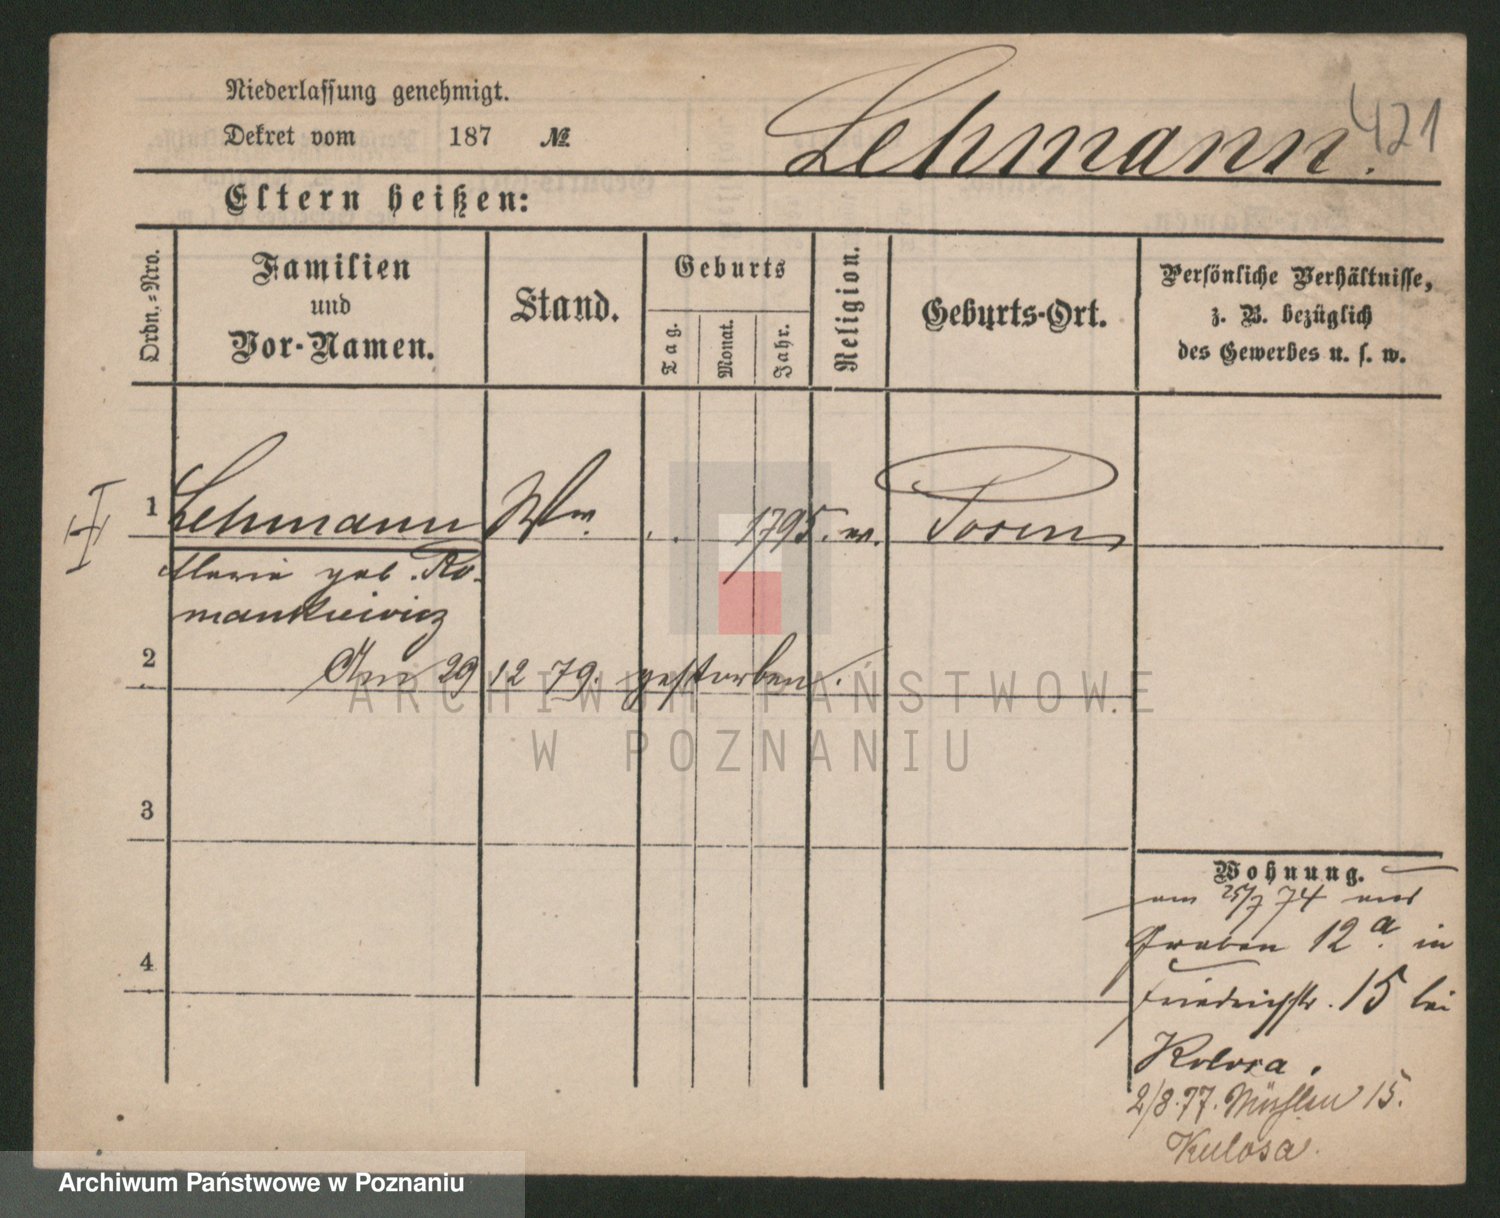 Niederlassung genehmigt.
Dekret vom 187 №
Lehmann.
421
Eltern heißen:
Ordn.-Nro.
Familien
und
Vor-Namen.
Stand.
Geburts
Tag.
Monat.
Jahr.
Religion.
Geburts-Ort.
Persönliche Verhältnisse,
z. B. bezüglich
des Gewerbes u. s. w.
1 Lehmann Ww. 1795. Posen
Marie geb. Ro-
mankiewicz
2
Am 29 12 79. gestorben.
3
4
Wohnung.
am 25/7 74 aus
Graben 12a. in
Friedrichstr. 15 bei
Kolosa.
2/8.77. Mühlen 15.
Kulosa.
ARCHIWUM PAŃSTWOWE
W POZNANIU
Archiwum Państwowe w Poznaniu